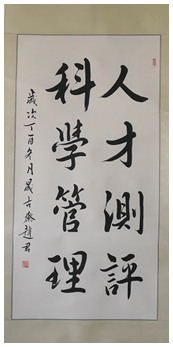 人才測評
科學管理
歲次丁酉冬月